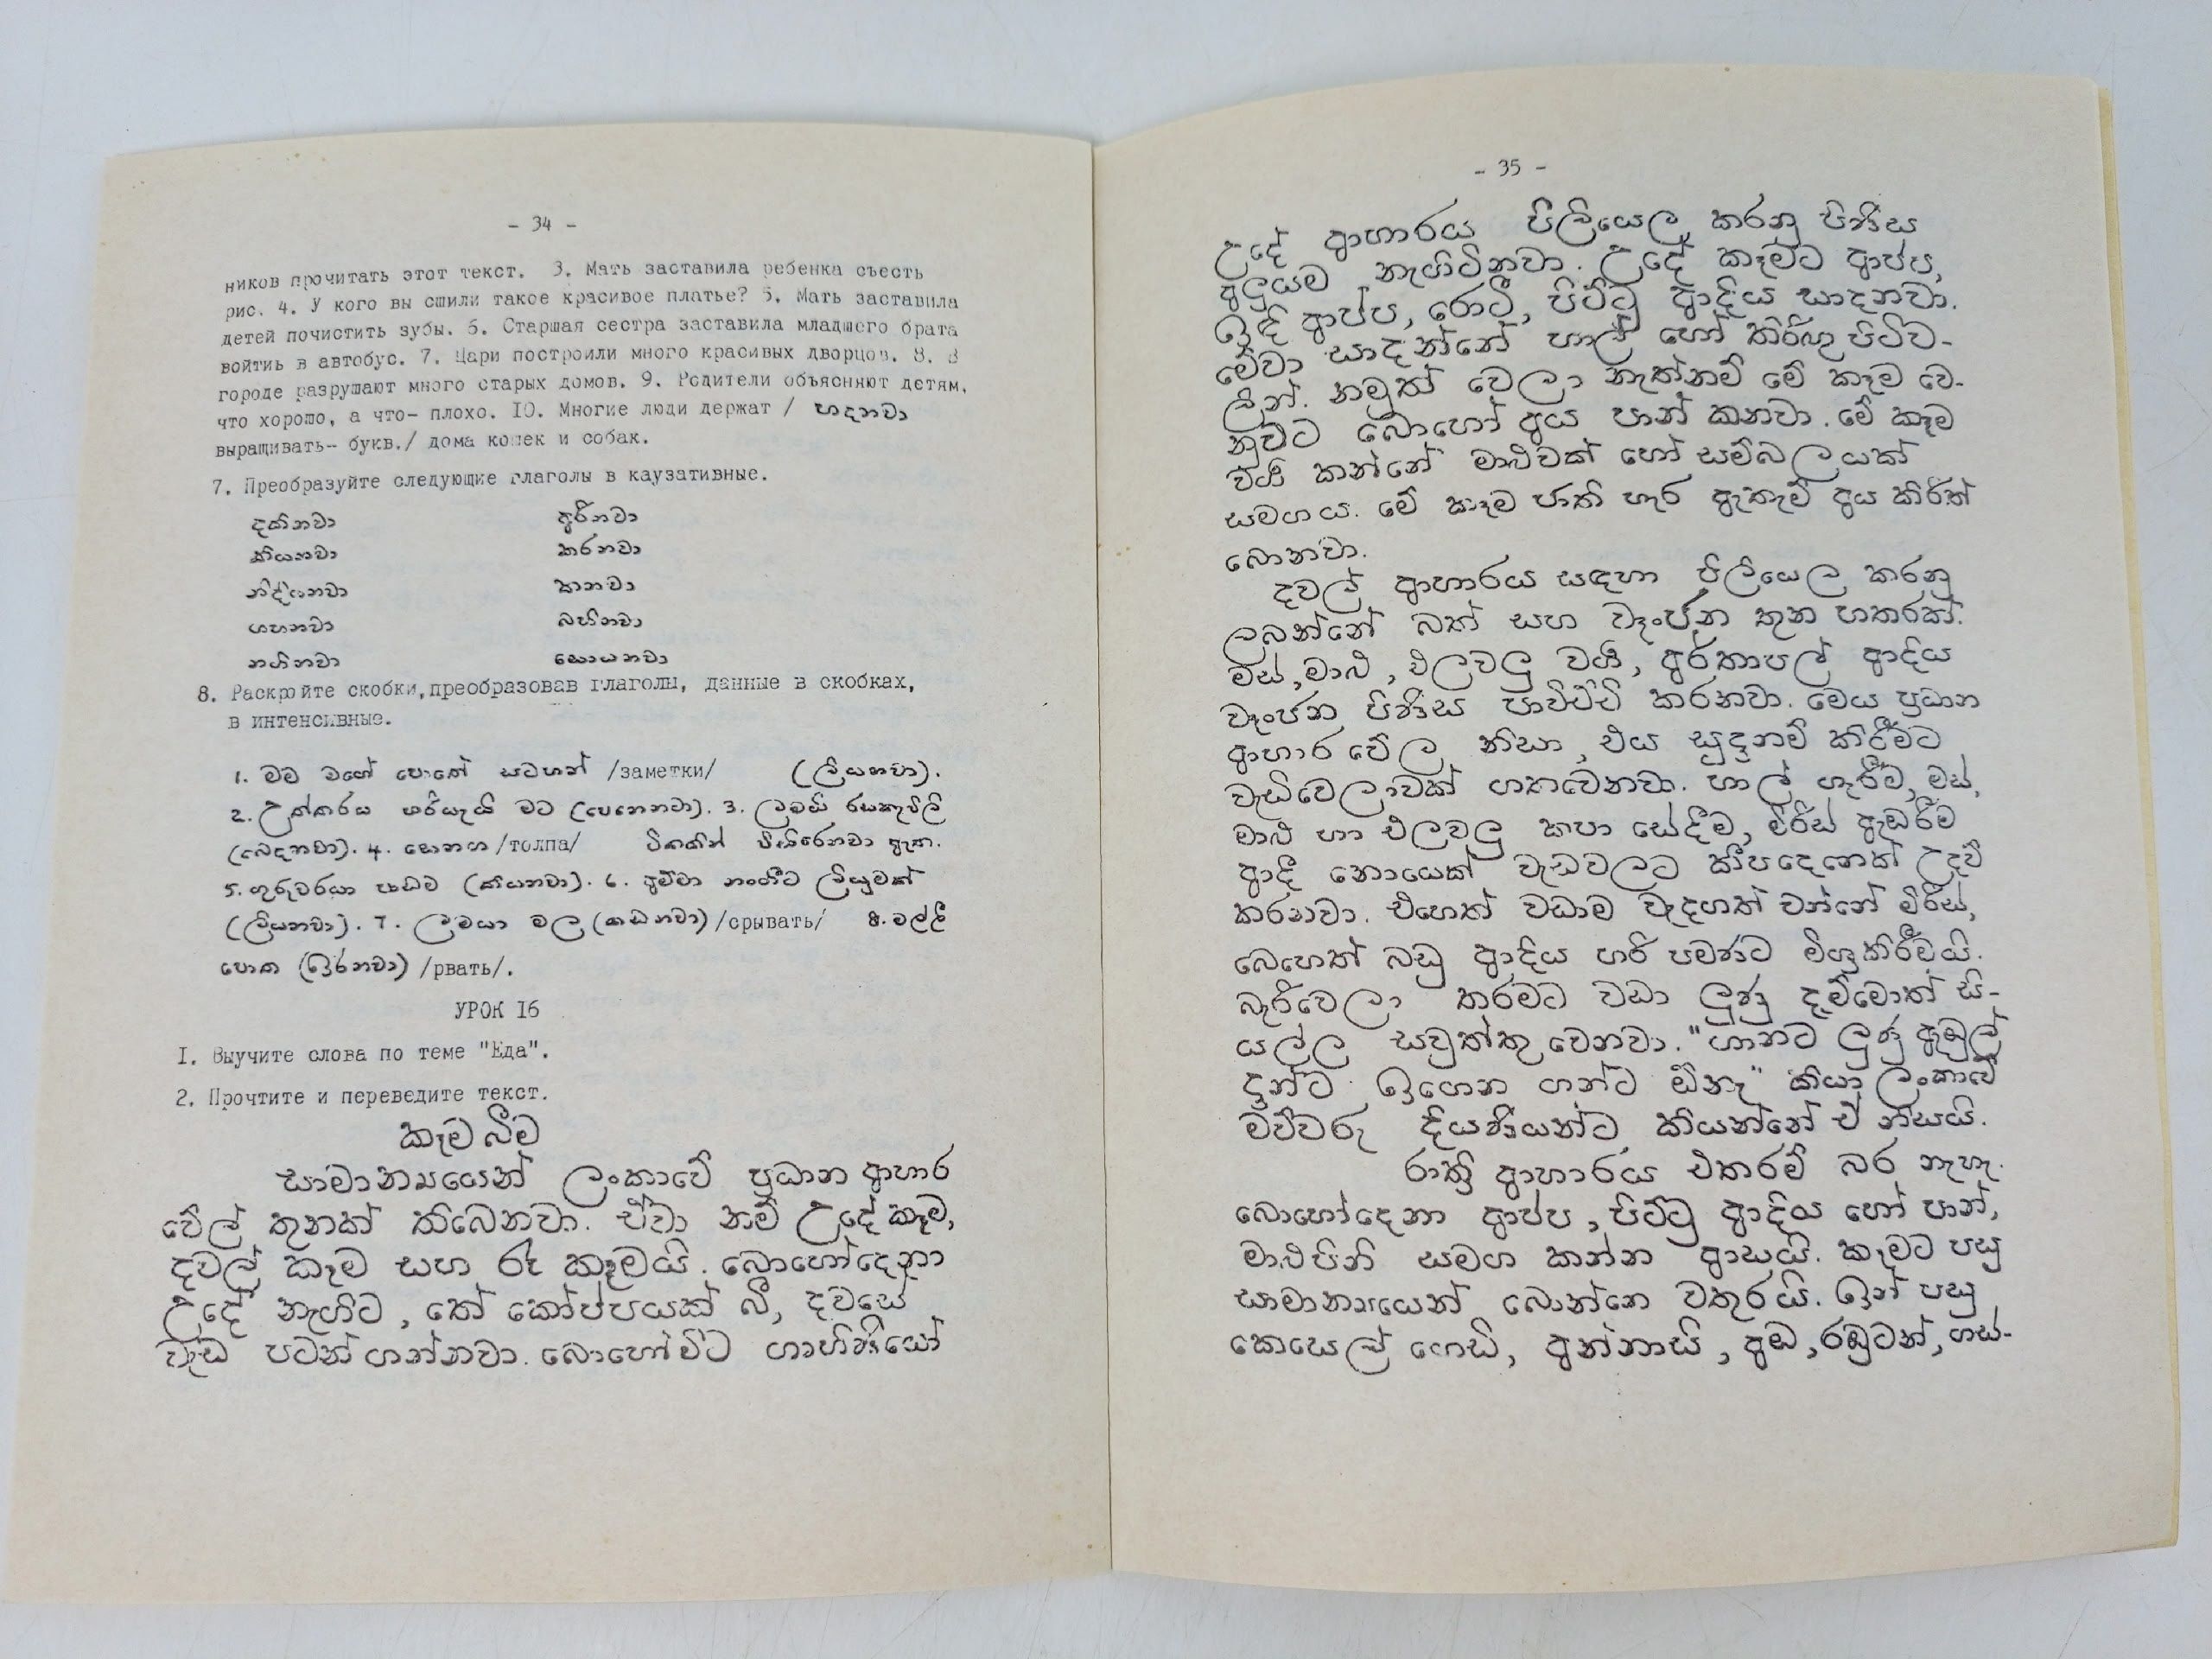 - 34 -
ников прочитать этот текст. 3. Мать заставила ребенка съесть
рис. 4. У кого вы сшили такое красивое платье? 5. Мать заставила
детей почистить зубы. 6. Старшая сестра заставила младшего брата
войтиь в автобус. 7. Цари построили много красивых дворцов. 8. В
городе разрушают много старых домов. 9. Родители объясняют детям,
что хорошо, а что- плохо. 10. Многие люди держат / හදනවා
выращивать- букв./ дома кошек и собак.
7. Преобразуйте следующие глаголы в каузативные.
දකිනවා අරිනවා
කියනවා කරනවා
නිදියනවා කානවා
ගහනවා බහිනවා
නගිනවා සොයනවා
8. Раскройте скобки,преобразовав глаголы, данные в скобках,
в интенсивные.
1. මම මගේ පොතේ සටහන් /заметки/ (ලියනවා).
2. උත්තරය හරියැයි මට (පෙනෙනවා). 3. ළමයි රසකැවිලි
(බෙදනවා). 4. සෙනග /толпа/ ටිකකින් විසිරෙනවා ඇත.
5. ගුරුවරයා පාඩම (කියනවා). 6. අම්මා නංගීට ලියුමක්
(ලියනවා). 7. ළමයා මල (කඩනවා) /срывать/ 8. මල්ලී
පොත (ඉරනවා) /рвать/.
УРОК 16
I. Выучите слова по теме "Еда".
2. Прочтите и переведите текст.
කෑම බීම
සාමාන්‍යයෙන් ලංකාවේ ප්‍රධාන ආහාර
වේල් තුනක් තිබෙනවා. ඒවා නම් උදේ කෑම,
දවල් කෑම සහ රෑ කෑමයි. බොහෝදෙනා
උදේ නැගිට, තේ කෝප්පයක් බී, දවසේ
වැඩ පටන් ගන්නවා. බොහෝවිට ගෘහිණියෝ
- 35 -
උදේ ආහාරය පිලියෙල කරනු පිණිස
අලුයම නැගිටිනවා. උදේ කෑමට ආප්ප,
ඉඳි ආප්ප, රොටී, පිට්ටු ආදිය සාදනවා.
මේවා සාදන්නේ හාල් හෝ තිරිඟු පිටිව-
ලින්. නමුත් වෙලා නැත්නම් මේ කෑම වෙ-
නුවට බොහෝ අය පාන් කනවා. මේ කෑම
වර්ග කන්නේ මාළුවක් හෝ සම්බලයක්
සමගය. මේ කෑම ජාති හැර ඇතැම් අය කිරිත්
බොනවා.
දවල් ආහාරය සඳහා පිලියෙල කරනු
ලබන්නේ බත් සහ වෑංජන තුන හතරක්.
මස්, මාළු, එලවලු වර්ග, අර්තාපල් ආදිය
වෑංජන පිණිස පාවිච්චි කරනවා. මෙය ප්‍රධාන
ආහාර වේල නිසා, එය සූදානම් කිරීමට
වැඩිවෙලාවක් ගතවෙනවා. හාල් ගැරීම, මස්,
මාළු හා එලවලු කපා සේදීම, මිරිස් ඇඹරීම
ආදී නොයෙක් වැඩවලට කීපදෙනෙක් උදව්
කරනවා. එහෙත් වඩාම වැදගත් වන්නේ මිරිස්,
බෙහෙත් බඩු ආදිය හරි පමණට මිශ්‍රකිරීමයි.
බැරිවෙලා තරමට වඩා ලුණු දැම්මොත් සි-
යල්ල සවුත්තු වෙනවා. "ගානට ලුණු ඇඹුල්
දාන්ට ඉගෙන ගන්ට ඕනෑ" කියා ලංකාවේ
මව්වරු දියණියන්ට කියන්නේ ඒ නිසයි.
රාත්‍රී ආහාරය එතරම් බර නැහැ.
බොහෝදෙනා ආප්ප, පිට්ටු ආදිය හෝ පාන්,
මාළුපිනි සමග කන්න ආසයි. කෑමට පසු
සාමාන්‍යයෙන් බොන්නෙ වතුරයි. ඉන් පසු
කෙසෙල් ගෙඩි, අන්නාසි, අඹ, රඹුටන්, ගස්-